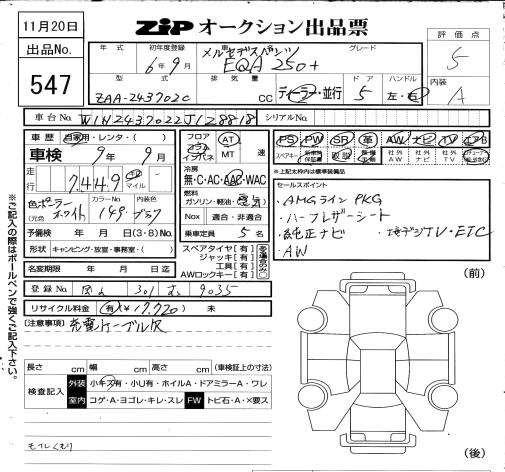 11月20日
ZIP オークション出品票
出品No.
547
年式 初年度登録 車名 グレード
6年9月 メルセデスベンツ EQA 250+
評価点
5
内装
A
型式 排気量 ドア ハンドル
ZAA-243702C cc ディーラー・並行 5 左・右
車台No. W1N2437022J128818 シリアルNo.
車歴 自家用・レンタ・( )
車検 9年9月
走行 7,449 km マイル
色 ポーラーホワイト カラーNo. 149 内装色 ブラック
(元色
予備検 年 月 日(3・8)No.
形状 キャンピング・放室・事務室・( )
名変期限 年 月 日迄
フロア コラム インパネ
AT
MT 速
冷房
無・C・AC・AAC・WAC
燃料
ガソリン・軽油・電気
Nox 適合・非適合
乗車定員 5名
スペアタイヤ[有]
ジャッキ[有]
工具[有]
AWロックキー[有]
有る場合のみ〇
PS PW SR 革 AW ナビ TV エアB
スペアキー 取説 社外AW 社外ナビ 社外TV
*上記太枠内は標準装備品
セールスポイント
・AMGライン PKG
・ハーフレザーシート
・純正ナビ ・地デジTV・ETC
・AW
登録No. 301 む 9035
リサイクル料金 有(¥17,720) 未
[注意事項] 充電ケーブル欠
長さ cm 幅 cm 高さ cm (車検証上の寸法)
検査記入 外装 小キズ有・小U有・ホイルA・ドアミラーA・ワレ
室内 コゲ・A・ヨゴレ・キレ・スレ FW トビ石・A・×要ス
モイルくもり
(前)
(後)
※ご記入の際はボールペンで強くご記入下さい。